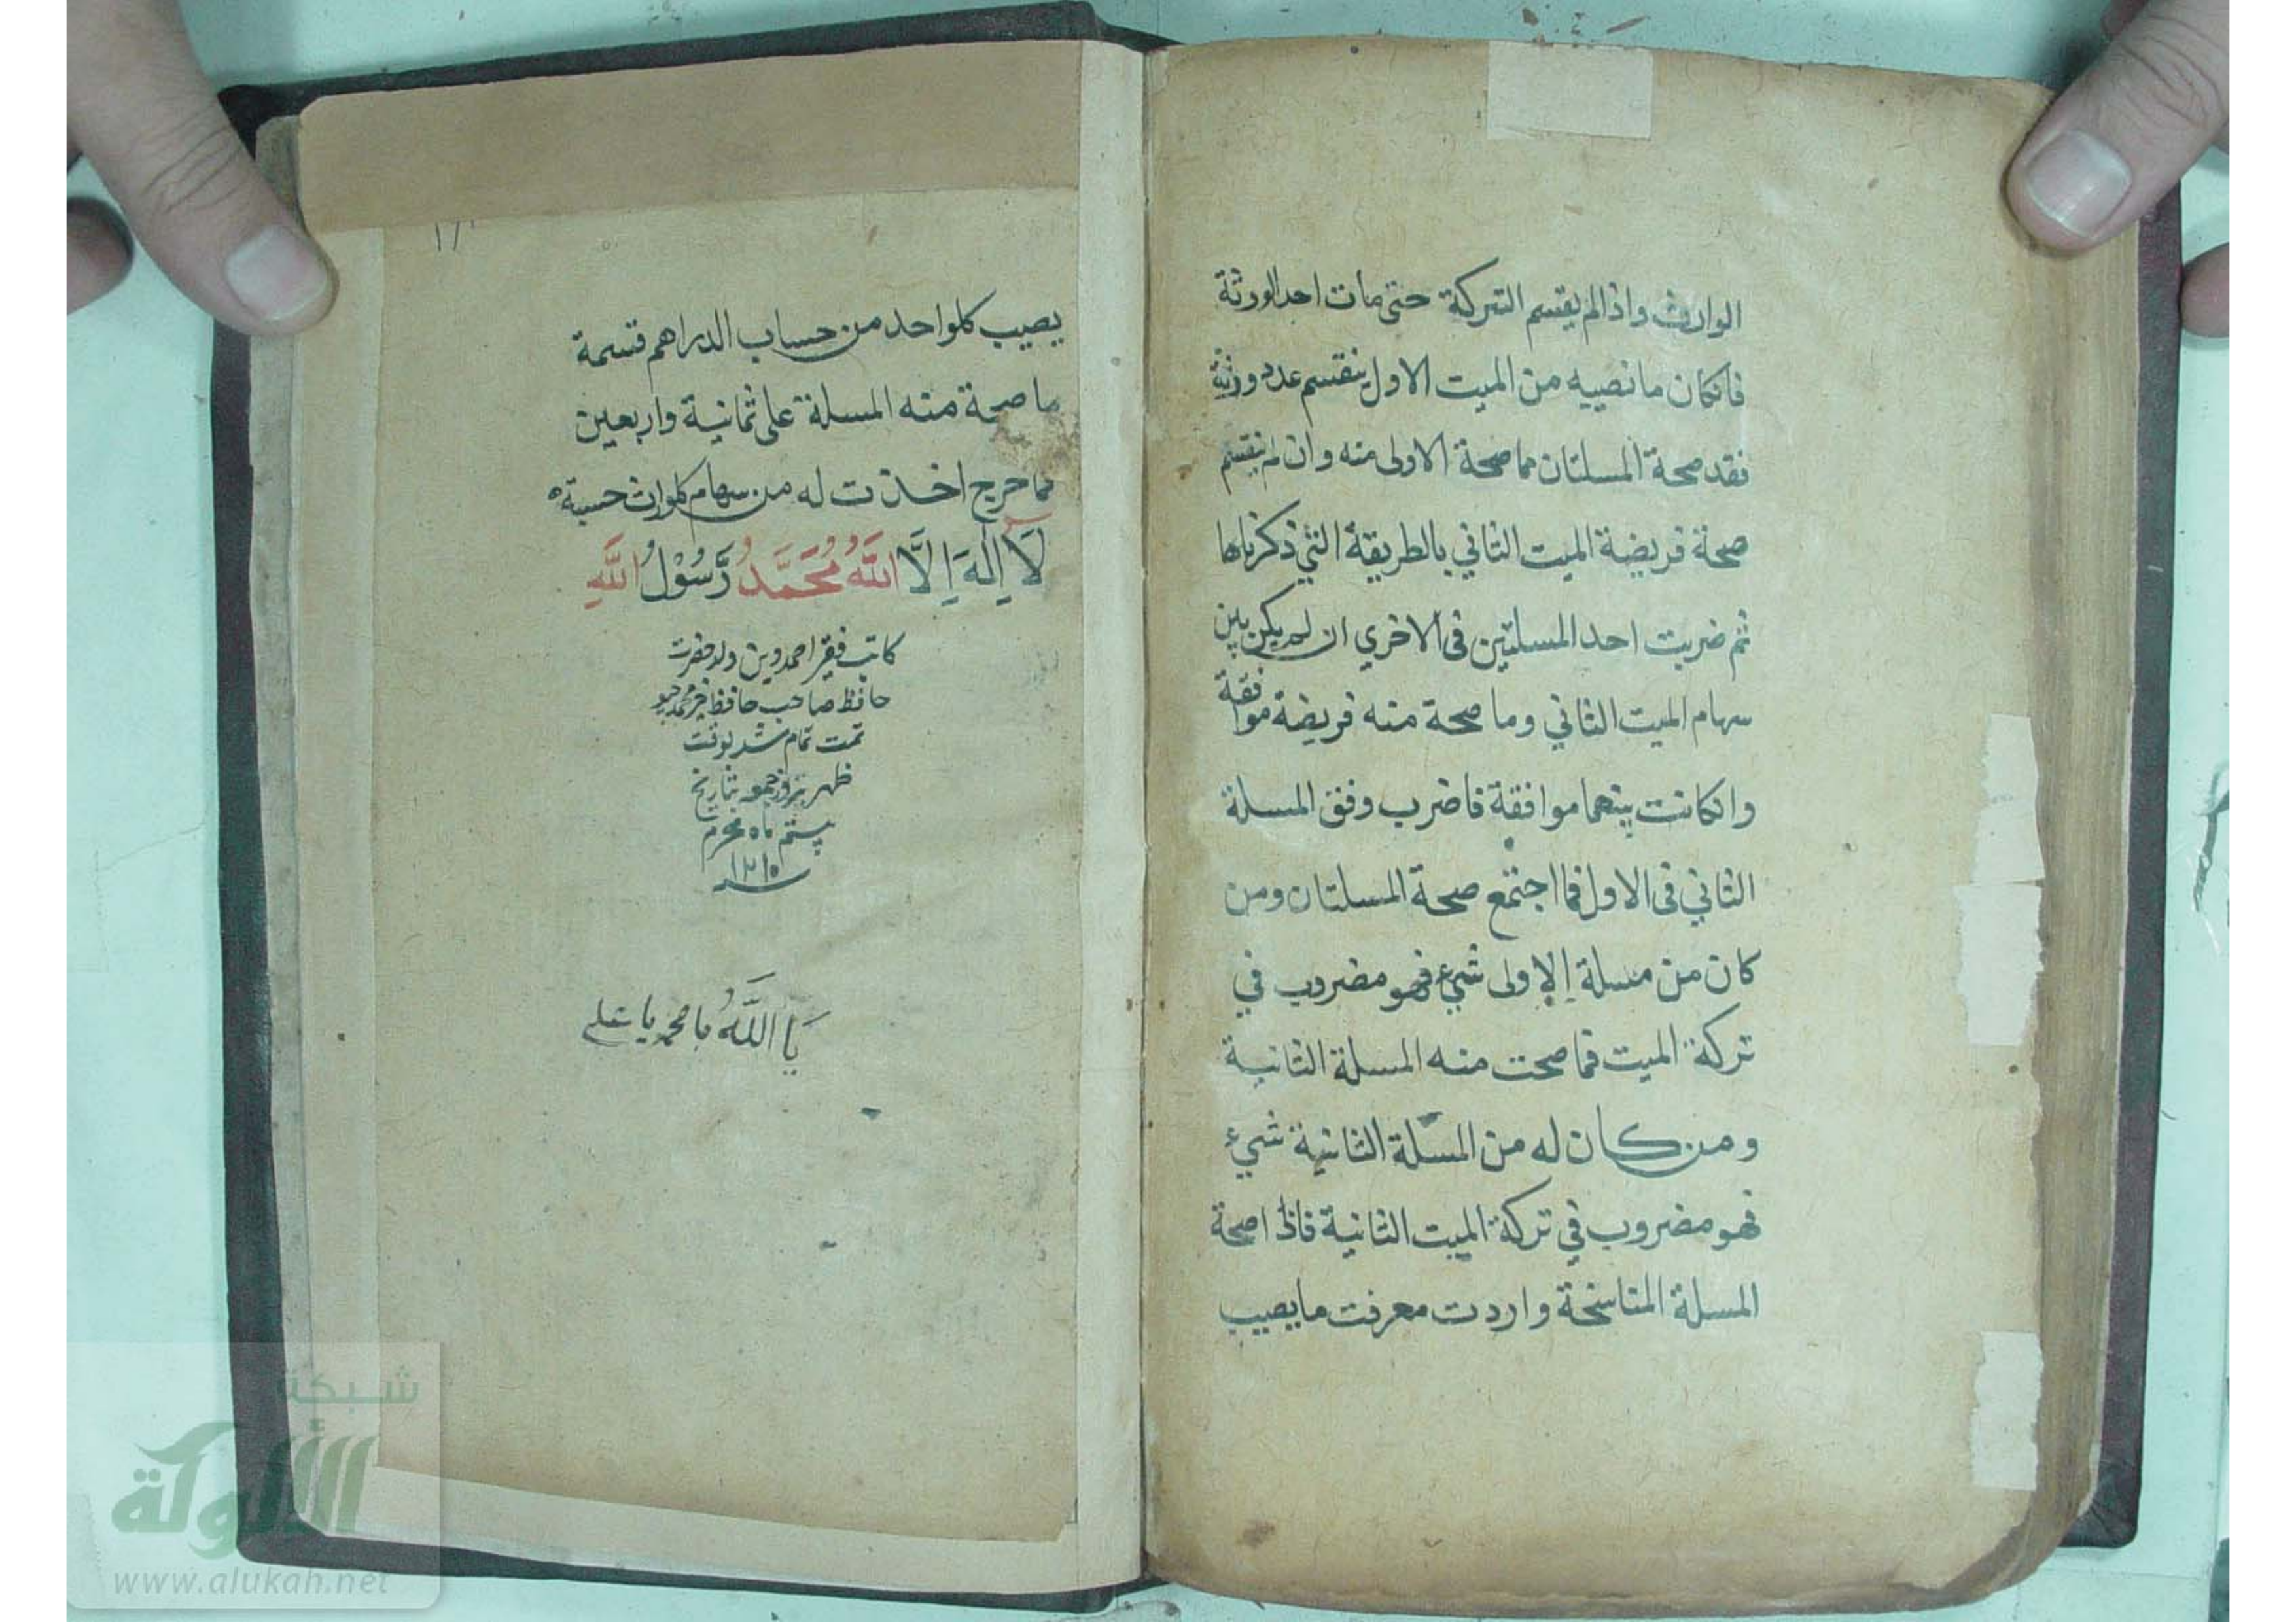 الوارث واذالم يقسم التركة حتى مات احد الورثة
فانكان ما نصيبه من الميت الاول ينقسم عدد ورثة
فقد صحة المسلتان مما صحة الاولى منه وان لم ينقسم
صحة فريضة الميت الثاني بالطريقة التي ذكرناها
ثم ضربت احد المسلتين فى الاخري ان لم يكن بين
سهام الميت الثاني وما صحة منه فريضة موافقة
وانكانت بينهما موافقة فاضرب وفق المسلة
الثاني فى الاول فما اجتمع صحة المسلتان ومن
كان من مسلة الاولى شيء فهو مضروب في
تركة الميت فما صحت منه المسلة الثانية
ومن كان له من المسلة الثانية شيء
فهو مضروب في تركة الميت الثانية فاذا صحة
المسلة المناسخة واردت معرفت ما يصيب
يصيب كلواحد من حساب الدراهم قسمة
ما صحة منه المسلة على ثمانية واربعين
فما خرج اخذت له من سهام كلوارث حسبته
لَا إِلَهَ إِلَّا اللَّهُ مُحَمَّدٌ رَّسُوْلُ اللَّهِ
كاتب فقير احمد ولد
حافظ صاحب حافظ
تمت تمام شد بوقت
ظهر بروز جمعه بتاريخ
ماه محرم
سنه ١٢١٥
يَا اللَّهُ يا محمد يا علي
شبكة
الألوكة
www.alukah.net